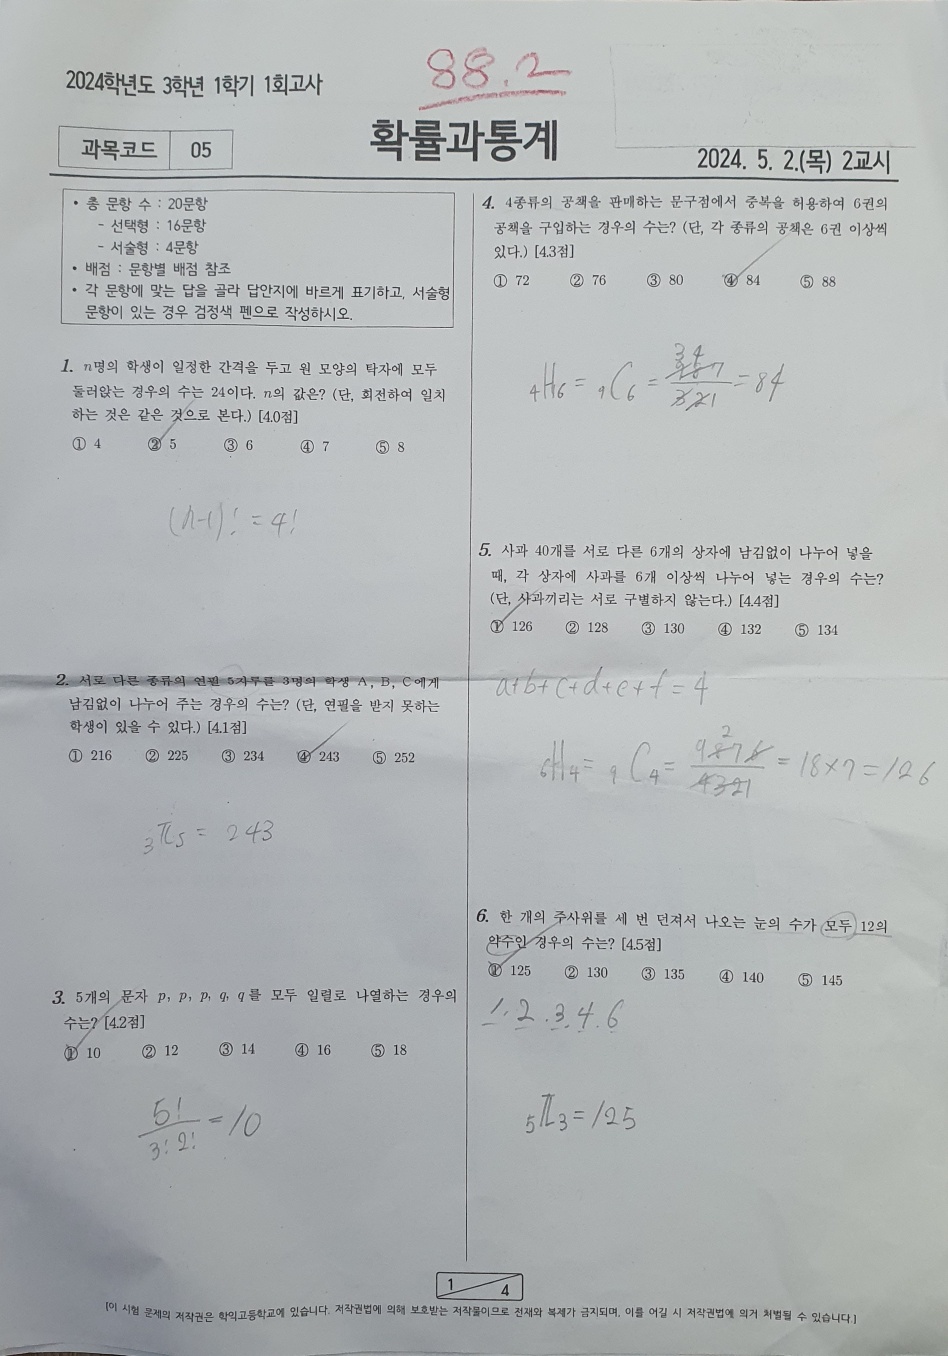 88.2
2024학년도 3학년 1학기 1회고사
과목코드 05
확률과통계
2024. 5. 2.(목) 2교시
• 총 문항 수 : 20문항
- 선택형 : 16문항
- 서술형 : 4문항
• 배점 : 문항별 배점 참조
• 각 문항에 맞는 답을 골라 답안지에 바르게 표기하고, 서술형
문항이 있는 경우 검정색 펜으로 작성하시오.
1. n명의 학생이 일정한 간격을 두고 원 모양의 탁자에 모두
둘러앉는 경우의 수는 24이다. n의 값은? (단, 회전하여 일치
하는 것은 같은 것으로 본다.) [4.0점]
① 4 ② 5 ③ 6 ④ 7 ⑤ 8
(n-1)! = 4!
2. 서로 다른 종류의 연필 5자루를 3명의 학생 A, B, C에게
남김없이 나누어 주는 경우의 수는? (단, 연필을 받지 못하는
학생이 있을 수 있다.) [4.1점]
① 216 ② 225 ③ 234 ④ 243 ⑤ 252
3π5 = 243
3. 5개의 문자 p, p, p, q, q를 모두 일렬로 나열하는 경우의
수는? [4.2점]
① 10 ② 12 ③ 14 ④ 16 ⑤ 18
5!
3! 2!
=10
4. 4종류의 공책을 판매하는 문구점에서 중복을 허용하여 6권의
공책을 구입하는 경우의 수는? (단, 각 종류의 공책은 6권 이상씩
있다.) [4.3점]
① 72 ② 76 ③ 80 ④ 84 ⑤ 88
3 4
4H6 = 9C6 = 987
321
= 84
5. 사과 40개를 서로 다른 6개의 상자에 남김없이 나누어 넣을
때, 각 상자에 사과를 6개 이상씩 나누어 넣는 경우의 수는?
(단, 사과끼리는 서로 구별하지 않는다.) [4.4점]
① 126 ② 128 ③ 130 ④ 132 ⑤ 134
a+b+c+d+e+f = 4
2
6H4 = 9C4 = 9876
4321
= 18×7 = 126
6. 한 개의 주사위를 세 번 던져서 나오는 눈의 수가 모두 12의
약수인 경우의 수는? [4.5점]
① 125 ② 130 ③ 135 ④ 140 ⑤ 145
1. 2 . 3. 4. 6
5π3 = 125
1 4
[이 시험 문제의 저작권은 학익고등학교에 있습니다. 저작권법에 의해 보호받는 저작물이므로 전재와 복제가 금지되며, 이를 어길 시 저작권법에 의거 처벌될 수 있습니다.]